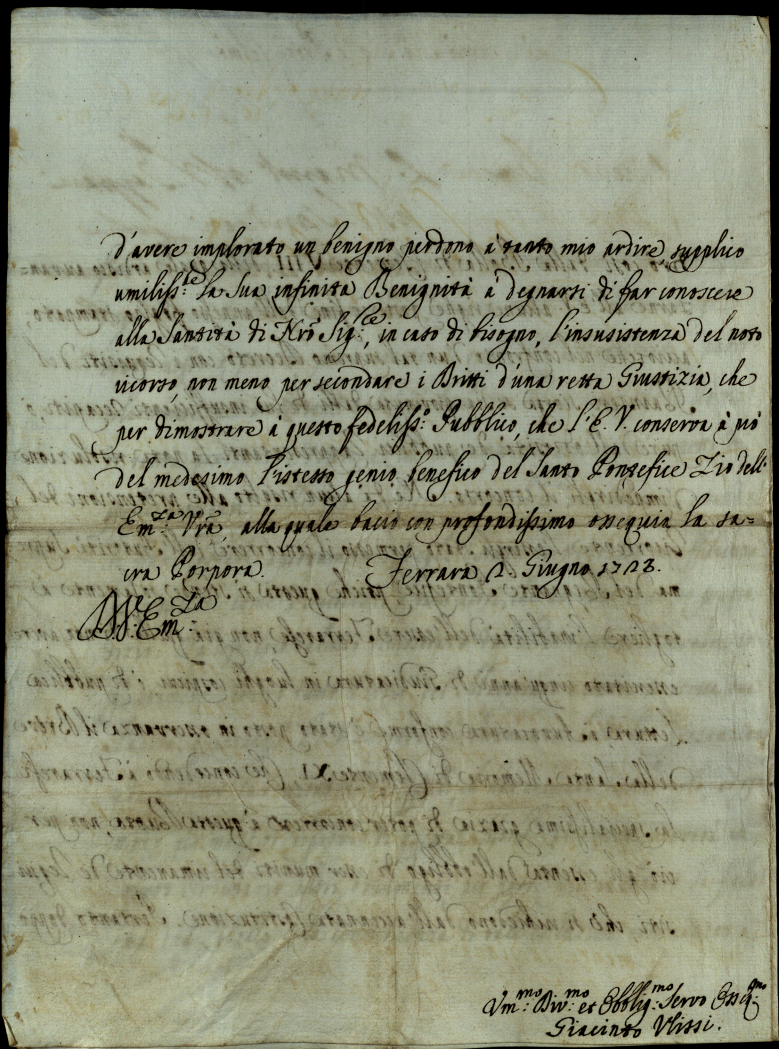 d'avere implorato un benigno perdono à tanto mio ardire, supplico
umiliss.te la Sua infinita Benignità à degnarsi di far conoscere
alla Santità di Nrõ Sig.re, in caso di bisogno, l'insusistenza del noto
ricorso, non meno per secondare i Dritti d'una retta Giustizia, che
per dimostrare à questo fedeliss.o Pubblico, che l'E. V. conserva à prò
del medesimo l'istesso genio benefico del Santo Pontefice Zio dell'
Em.za Vrã, alla quale bacio con profondissimo ossequio la sa=
cra Porpora. Ferrara 2. Giugno 1728.
Em.za
Vm.mo Div.mo et Obblig.mo Servo Osseq.mo
Giacinto Vlissi.